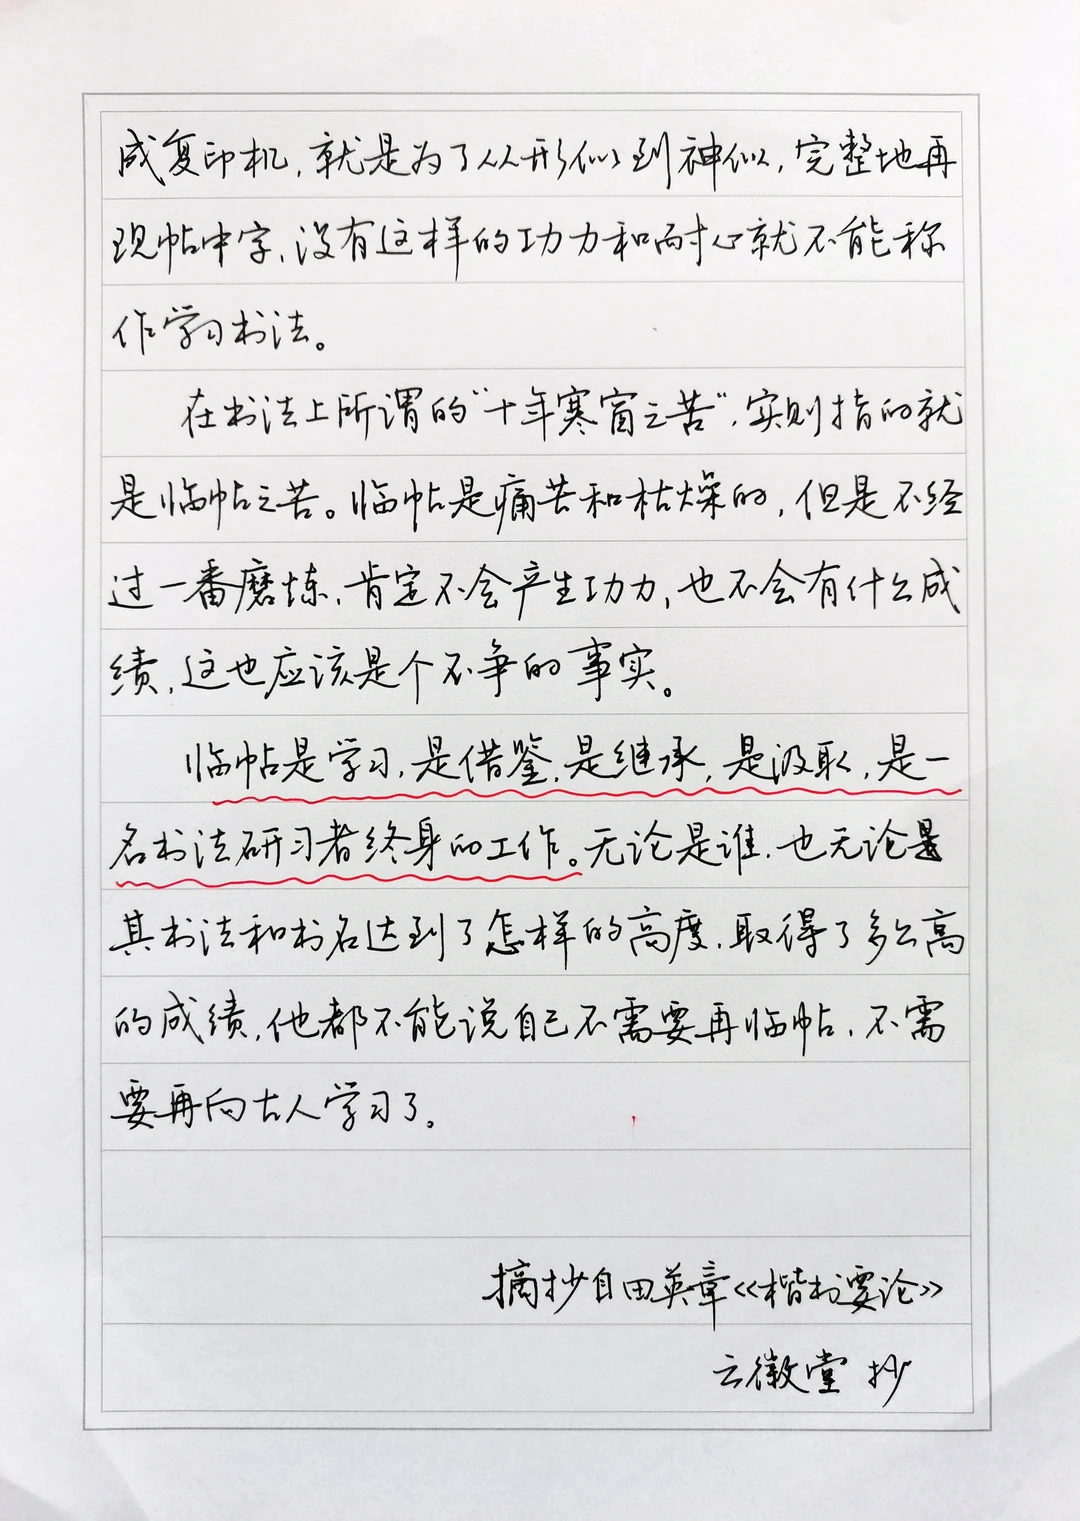 成复印机，就是为了从形似到神似，完整地再
现帖中字，没有这样的功力和耐心就不能称
作学习书法。
在书法上所谓的“十年寒窗之苦”，实则指的就
是临帖之苦。临帖是痛苦和枯燥的，但是不经
过一番磨炼，肯定不会产生功力，也不会有什么成
绩，这也应该是个不争的事实。
临帖是学习，是借鉴，是继承，是汲取，是一
名书法研习者终身的工作。无论是谁，也无论是
其书法和书名达到了怎样的高度，取得了多么高
的成绩，他都不能说自己不需要再临帖，不需
要再向古人学习了。
摘抄自田英章《楷书要论》
云徽堂 抄